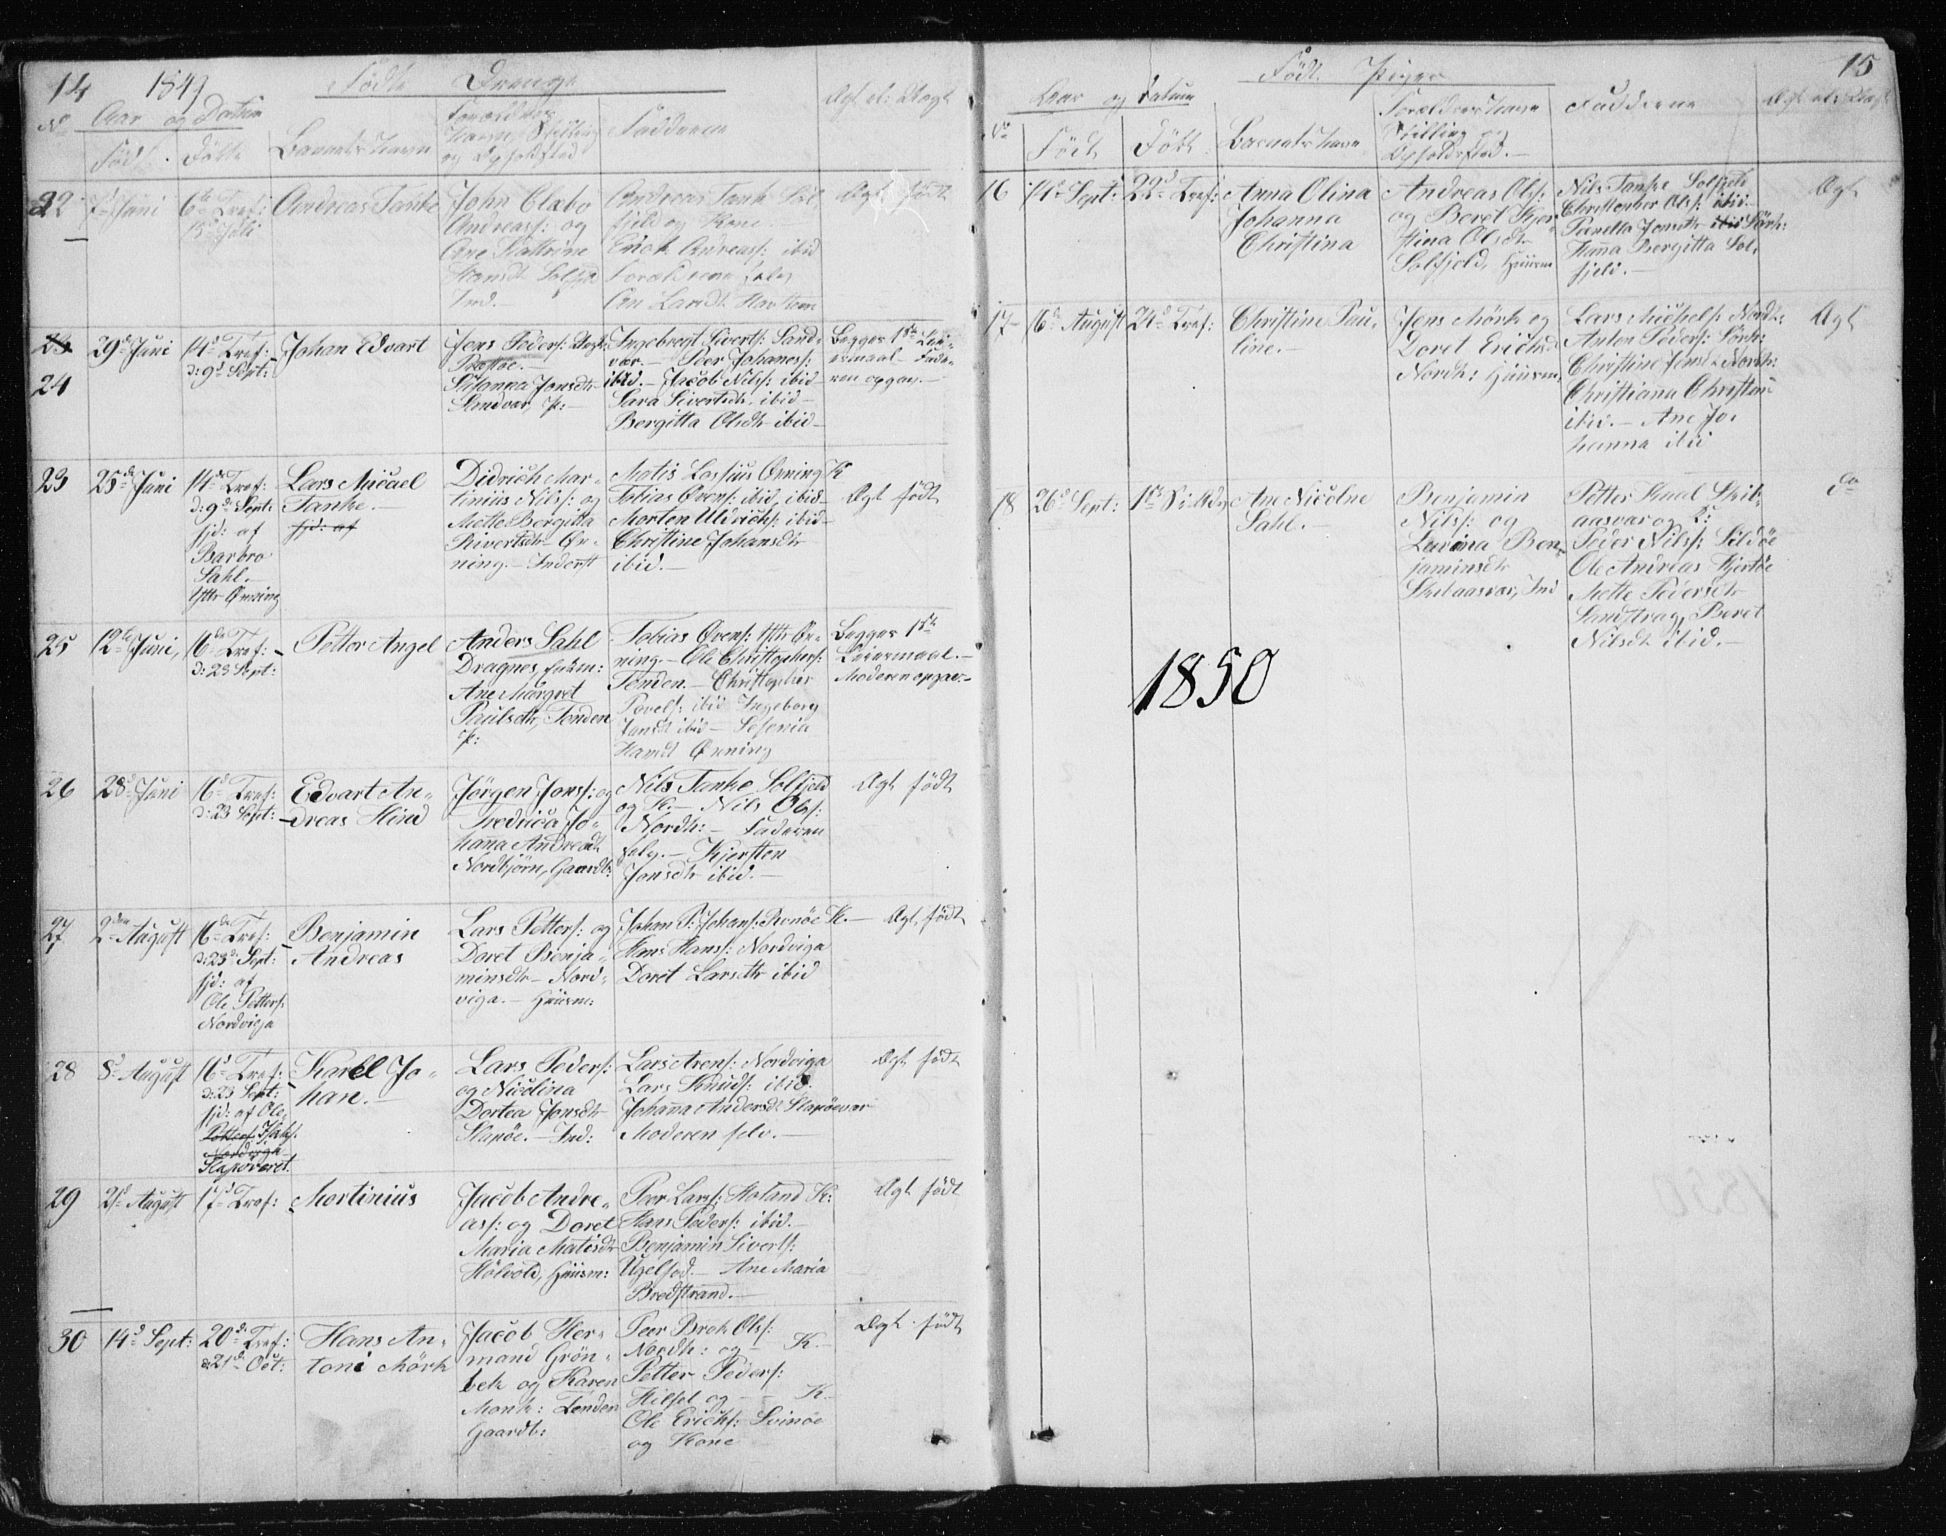 14 1849 Födte Drenge
No Aar og Datum
Födt. Döbte Barnets Navn
Forældrenes Navn, Stilling og Opholdsted
Fadderne
Ægt el: Uægt
22 7de Juni
6te Tref:
15de Juli
Andreas Tanke
John Clabo
Andreass: og
Ane Kathrine
Hansdt Solfjeld
Ind.
Andreas Tank Sol-
fjeld og Kone.
Erich Andreass: ibid
Forældrene selv
Ane Larsdt Havstein
Ægt født
23
24
29d Juni
14d Tref:
d: 9d Sept:
Johan Edvart
Jens Peders: Ungk:
Susanna Jonsdtr
Sandvær, P:
Ingebregt Siverts: Sand-
vær. Peer Johaness:
ibid. Jacob Nils: ibid
Sara Sivertsdtr ibid
Bergitta Olsdtr ibid
Begges 1ste Leie-
rmaal Fade-
ren opgav.
23
25de Juni
14d Tref:
d: 9d Sept:
hjd: af
Barbro
Sahl.
Hstr Önning
Lars Micael
Tanke.
hjd: af
Didrich Mar-
tinius Nils: og
Mette Bergitta
Sivertsdtr Ön-
ning. Inderst
Matis Lassius Önning K
Tobias Ovens: ibid, ibid
Morten Uldrichs: ibid
Christine Johansdtr
ibid.
Ægt født
25
12te Juni,
16de Tref:
d: 23 Sept:
Petter Angel
Anders Sahl
Dragnes,
Ane Margret
Paulsdtr, Tenden
P:
Tobias Ovens: Hstr Ön-
ning Ole Christophers:
Tenden. Christopher
Povels: ibid Ingeborg
Jansdt ibid Sefenia
Hansdt Önning
Begges 1ste
Leiermaal.
Moderen opgav.
26
28d Juni
16d Tref:
d: 23 Sept:
Edvart An-
dreas Hind
Jörgen Jons: og
Fredrica Jo-
hanna Andreadt
Nordbjörn, Gaardb:
Nils Tanke Solfjeld
og K. Nils Ols:
Nordh: Faderen
selv. Kjersten
Jonsdtr ibid.
Ægt født
27
2den August
16de Tref:
d: 23d Sept:
hjd: af
Ole Petters:
Nordviga
Benjamin
Andreas
Lars Petters: og
Doret Benja-
minsdtr Nord-
viga. Huusm:
Johan P: Johans: Rönöe K.
Hans Hans: Nordviga
Doret Larsdtr ibid
Ægt født
28
8d August
16d Tref:
d: 23 Sept:
hjd: af Ole
Petters:
Nordviga
Slapöveret
Karel Jo-
han.
Lars Peders:
og Nicolina
Dortea Jonsdtr
Slapöe. Ind:
Lars Arens: Nordviga
Lars Knuds: ibid.
Johanna Andersdt Slapöevær
Moderen selv.
Ægt født
29
21d August
17d Tref:
Mortinius
Jacob Andre-
ass: og Doret
Maria Matisdtr
Huusm:
Peer Lars: Hatand K:
Hans Peders: ibid.
Benjamin Siverts:
Uselsod. Ane Maria
Bredstrand.
Ægt født
30
14d Sept:
20de Tref:
d: 21d Oct:
Hans An-
toni Mörk
Jacob Her-
mand Grön-
bek og Karen
Monk: Tenden
Gaardb:
Peer Brok Ols:
Nordh: og K.
Petter Peders:
Hilsel og K.
Ole Erichs: Svinöe
og Kone
Ægt født
Födte Piger 15
Aar og Datum
No Födt Döbt Barnets Navn
Forældrenes Navn Stilling og Opholdsted.
Fadderne
Ægt el: Uægt
16
14d Sept:
22d Tref:
Anna Olina
Johanna
Christina
Andreas Ols:
og Beret Kjer-
stina Olsdtr
Solfjeld, Huusm
Nils Tanke Solfjeld
Christopher Ols: ibid
Pernella Jonsdtr ibid Sörh:
Hanna Bergitta Sol-
fjeld.
Ægt
17
16d August
24d Tref:
Christine Pau-
line.
Jens Mörk og
Doret Erichsd
Nordh: Huusm,
Lars Michels: Nordh:
Anton Peders: Sörh:
Christine Jensd Nordh:
Christianna Christans
ibid. Ane Jo-
hanna ibid
Ægt
18
26d Sept:
Ane Nicoline
Sahl.
Benjamin
Nils: og
Larina Ben-
jaminsdtr
Skibaasvær, Ind
Petter Knal Skib-
aasvær og K:
Peder Nils: Sildöe
Ole Andreas Hjertöe
Mette Pedersdtr
Sandstrag, Beret
Nilsdt ibid.
do
1850